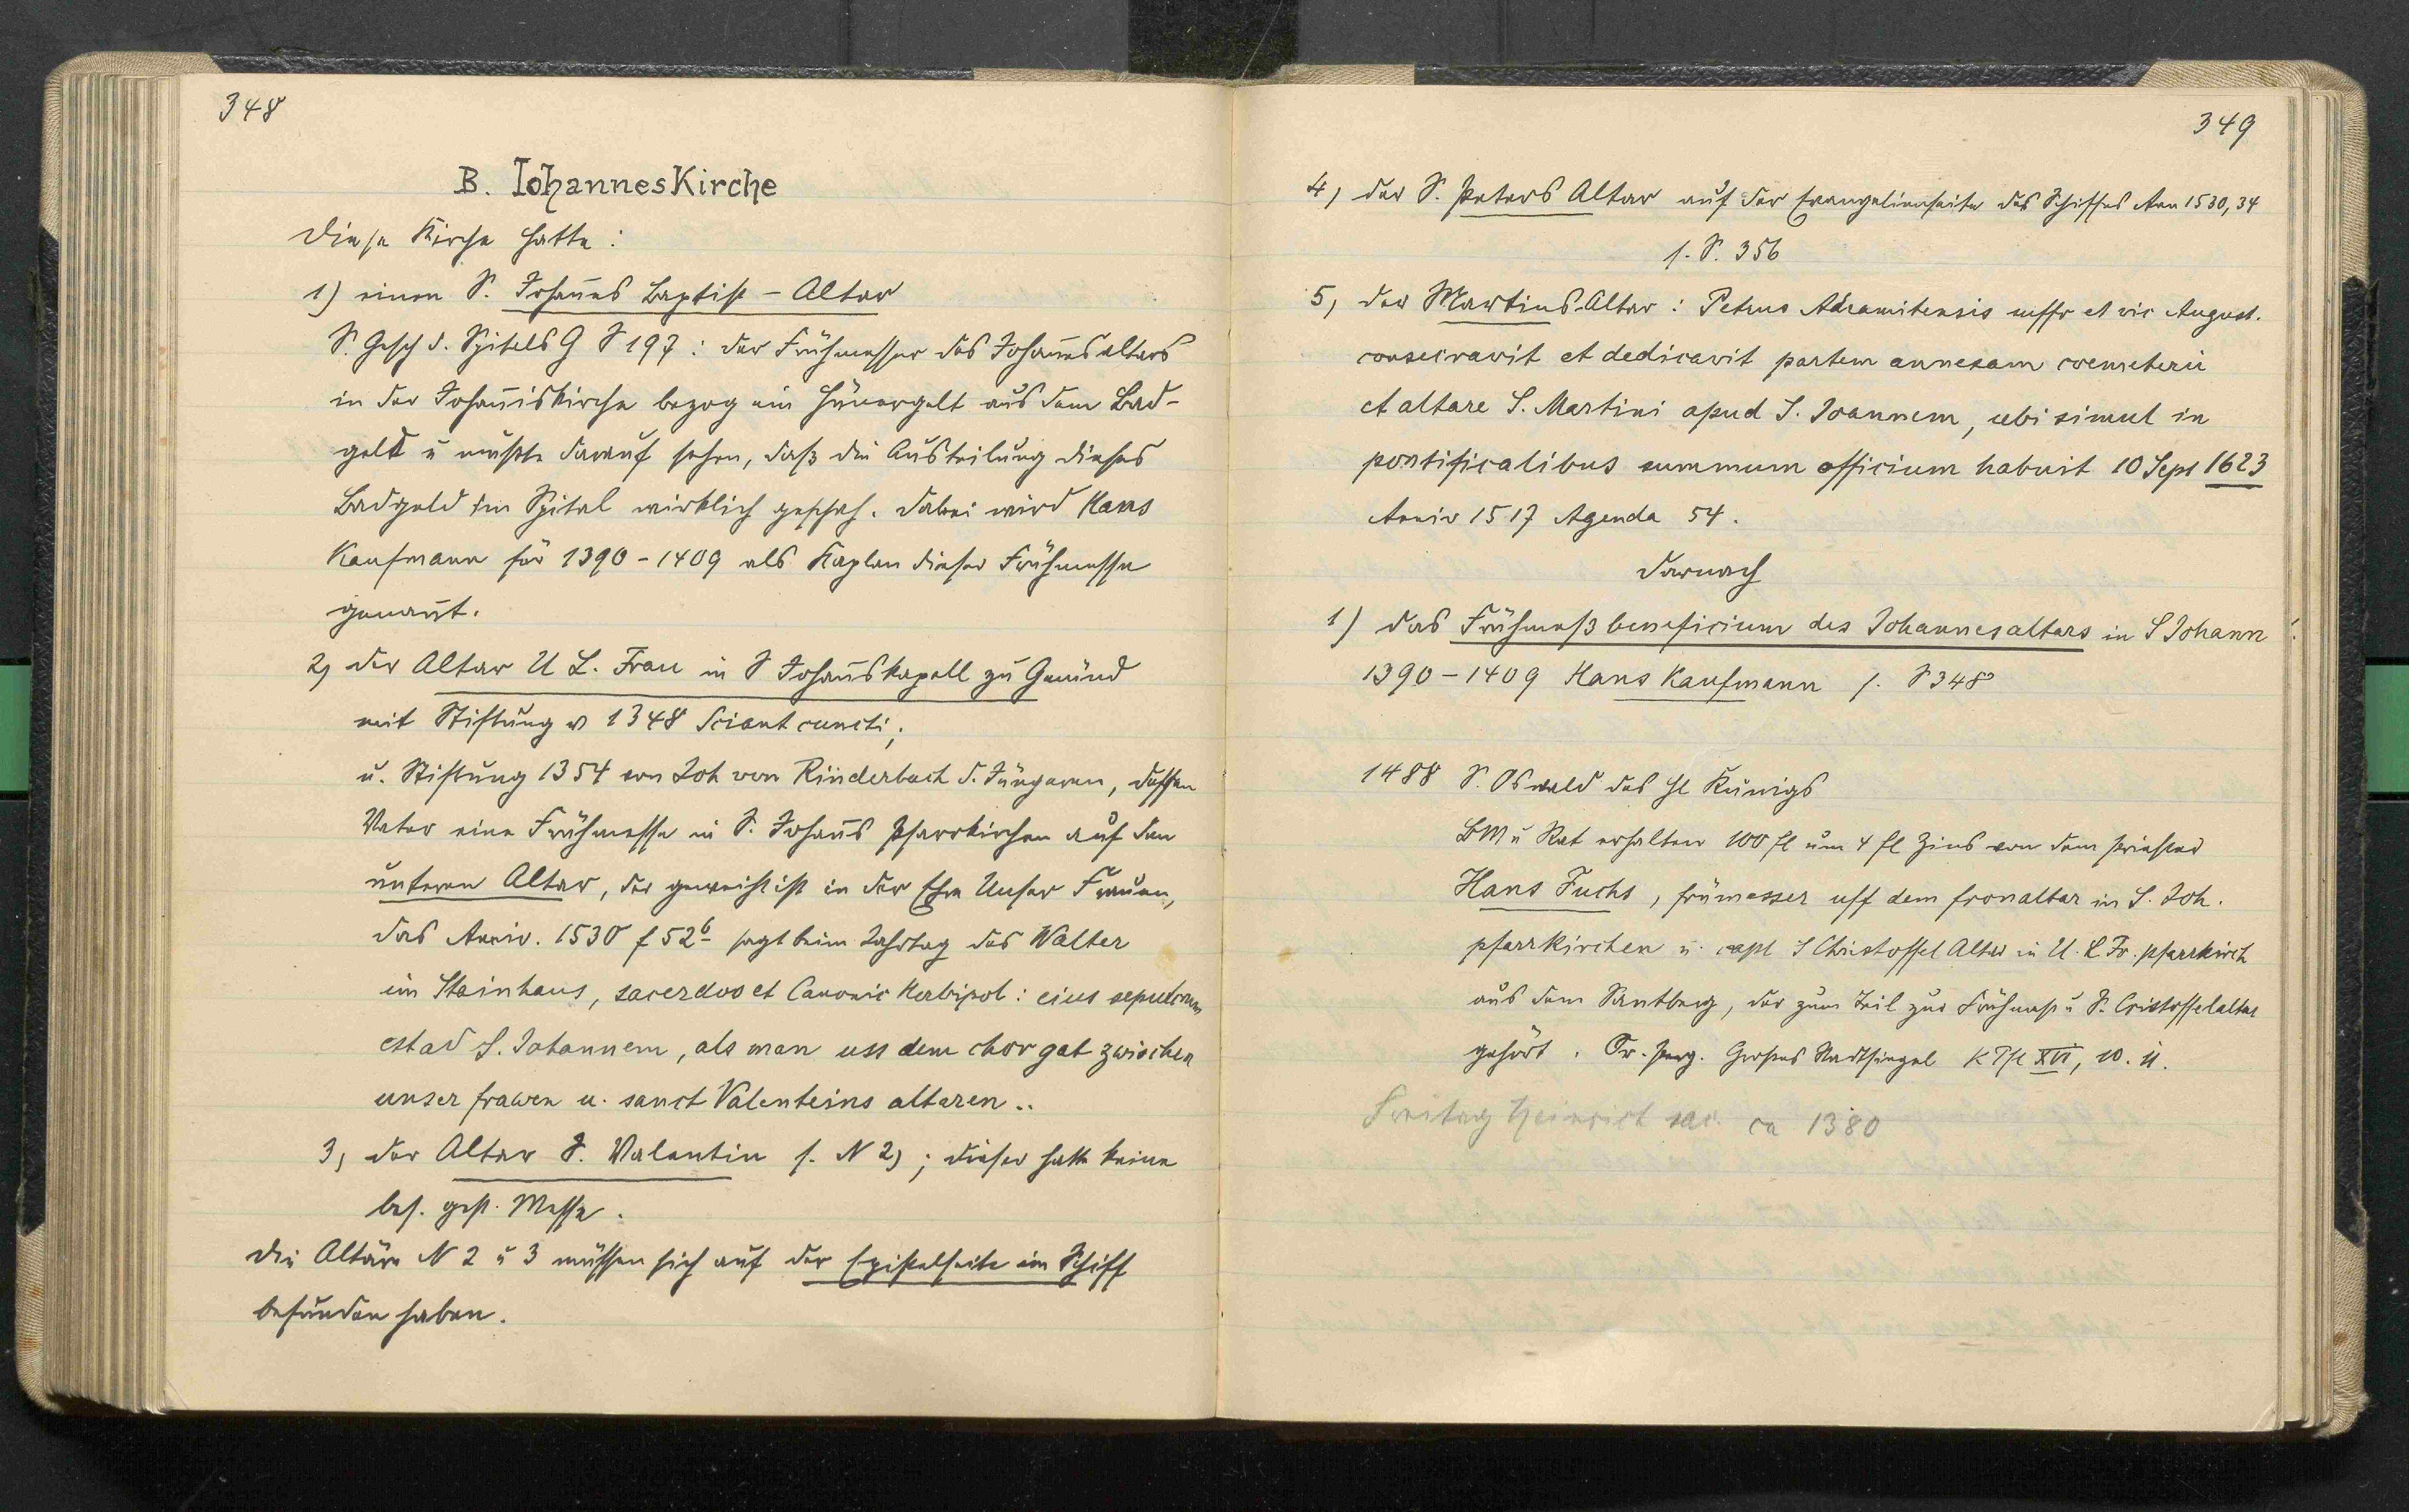 348
B. Iohannes Kirche
Diese Kirche hatte:
1) einen S. Joham̄es Baptist – Altar
S. Gesch d. Spitals G S 197: der Frühmesser des Joham̄esaltars
in der Johan̄iskirche bezog ein Hünergelt aus dem Bad-
geld u mußte darauf sehen, daß die Austeilung dieses
Badgeld im Spital wirklich geschah. Dabei wird Hans
Kaufmann für 1390–1409 als Kaplan dieser Frühmesse
genan̄t.
2) der Altar U L. Frau in S Johan̄skapell zu Gmünd
mit Stiftung v 1348 Sciant cuncti;
u. Stiftung 1354 von Joh von Rinderbach d. Jüngeren, dessen
Vater eine Frühmesse in S. Johan̄s Pfarrkirchen auf den
unteren Altar, der geweiht ist in der Ehre Unser Frauen,
das Anniv. 1530 f 52b sagt beim Jahrtag des Walter
im Stainhaus, sacerdos et Canonic Herbipol: eius sepulcrum
est ad S. Johannem, als man uss dem chor gat zwischen
unser frawen u. sanct Valenteins altaren..
3) der Altar S. Valentin s. N 2); dieser hatte keine
bes. gest. Messe.
Die Altäre N 2 u 3 müssen sich auf der Epistelseite im Schiff
befunden haben.
349
4) der S. Peters Altar auf der Evangelienseite des Schiffes Ann 1530, 34
s. S. 356
5) der Martins Altar: Petrus Adramitensis suffr et vic August.
consecravit et dedicavit partem annexam coemeterii
et altare S. Martini apud S. Joannem, ubi simul in
pontificalibus summum officium habuit 10 Sept 1623
Anniv 1517 Agenda 54.
Darnach
1) das Frühmeßbeneficium des Johannesaltars in S Johann:
1390–1409 Hans Kaufmann s. S 348
1488 S. Oswald des hl Künigs
BM u Rat erhalten 100 fl um 4 fl Zins von dem Priester
Hans Fuchs, frümesser uff dem fronaltar in S. Joh.
pfarrkirchen u. capl S Christoffel Altar in U. L Fr. pfarrkirch
aus dem Santberg, der zum Teil zur Frühmeß u S. Cristoffelaltar
gehört. Or. Perg. Großes Stadtsiegel K Pfl XVI, 10. u.
Freitag Heinrich sac. ca 1380